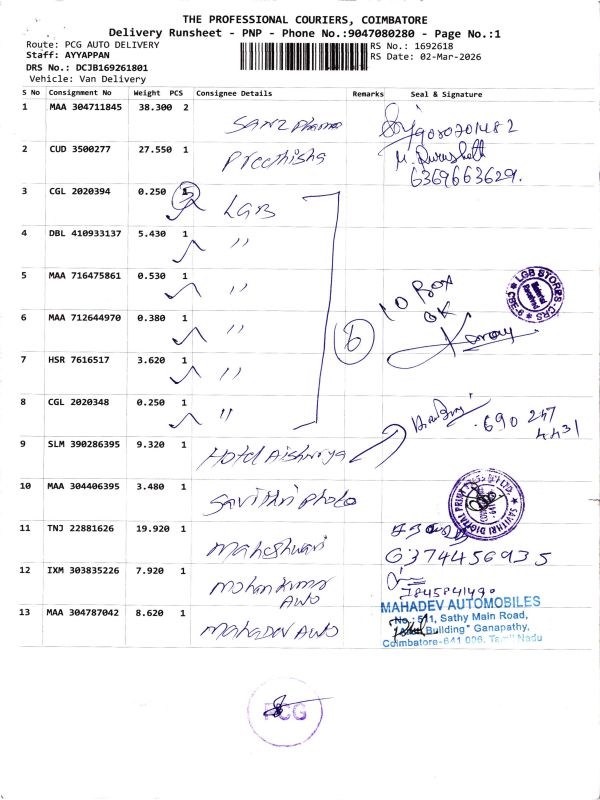 THE PROFESSIONAL COURIERS, COIMBATORE
Delivery Runsheet - PNP - Phone No.:9047080280 - Page No.:1
Route: PCG AUTO DELIVERY
RS No.: 1692618
Staff: AYYAPPAN
RS Date: 02-Mar-2026
DRS No.: DCJB169261801
Vehicle: Van Delivery
S No Consignment No Weight PCS Consignee Details Remarks Seal & Signature
1 MAA 304711845 38.300 2 SANZ Pharma 9080201482
2 CUD 3500277 27.550 1 Preethisha
6369663629.
3 CGL 2020394 0.250 5 LGB
4 DBL 410933137 5.430 1 "
5 MAA 716475861 0.530 1 "
LGB STORES-CRS
CBE-9
Material Received
10 Box
OK
6 MAA 712644970 0.380 1 "
6
7 HSR 7616517 3.620 1 "
8 CGL 2020348 0.250 1 "
690 247
4431
9 SLM 390286395 9.320 1 Hotel Aishwrya
10 MAA 304406395 3.480 1 Savithri Photo
SAVITHRI DIGITAL PRINT
11 TNJ 22881626 19.920 1 Maheshwari
6374456935
12 IXM 303835226 7.920 1 Mohan Kumar
Auto
7845841490
13 MAA 304787042 8.620 1 Mahadev Auto
MAHADEV AUTOMOBILES
No.: 511, Sathy Main Road,
Building" Ganapathy,
Coimbatore-641 006. Tamil Nadu
PCG